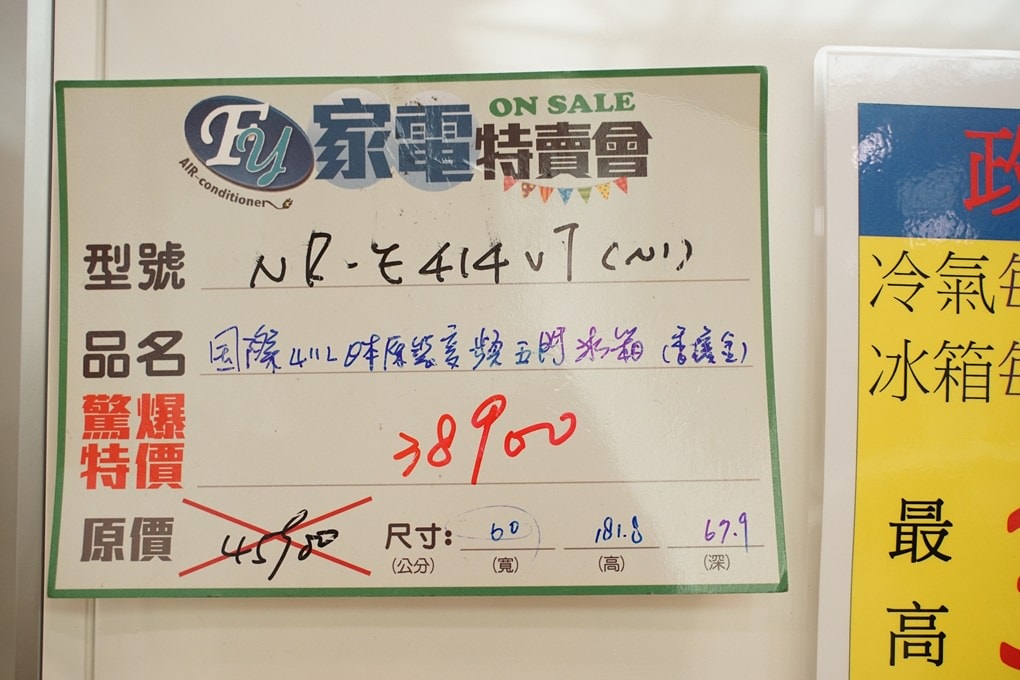 FY
AIR-conditioner
家電特賣會
ON SALE
型號 NR-E414VT (N1)
品名 国際411L日本原裝變頻五門冰箱(香檳金)
驚爆特價 38900
原價 45900
尺寸: 60 181.8 67.9
(公分) (寬) (高) (深)
政
冷氣每
冰箱每
最
高